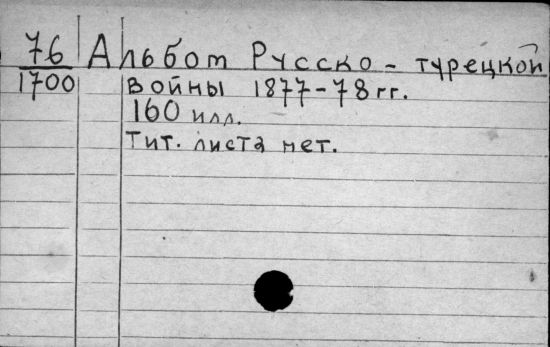 76 Альбом Русско-турецкой
1700 войны 1877-78 гг.
160 илл.
Тит. листа нет.